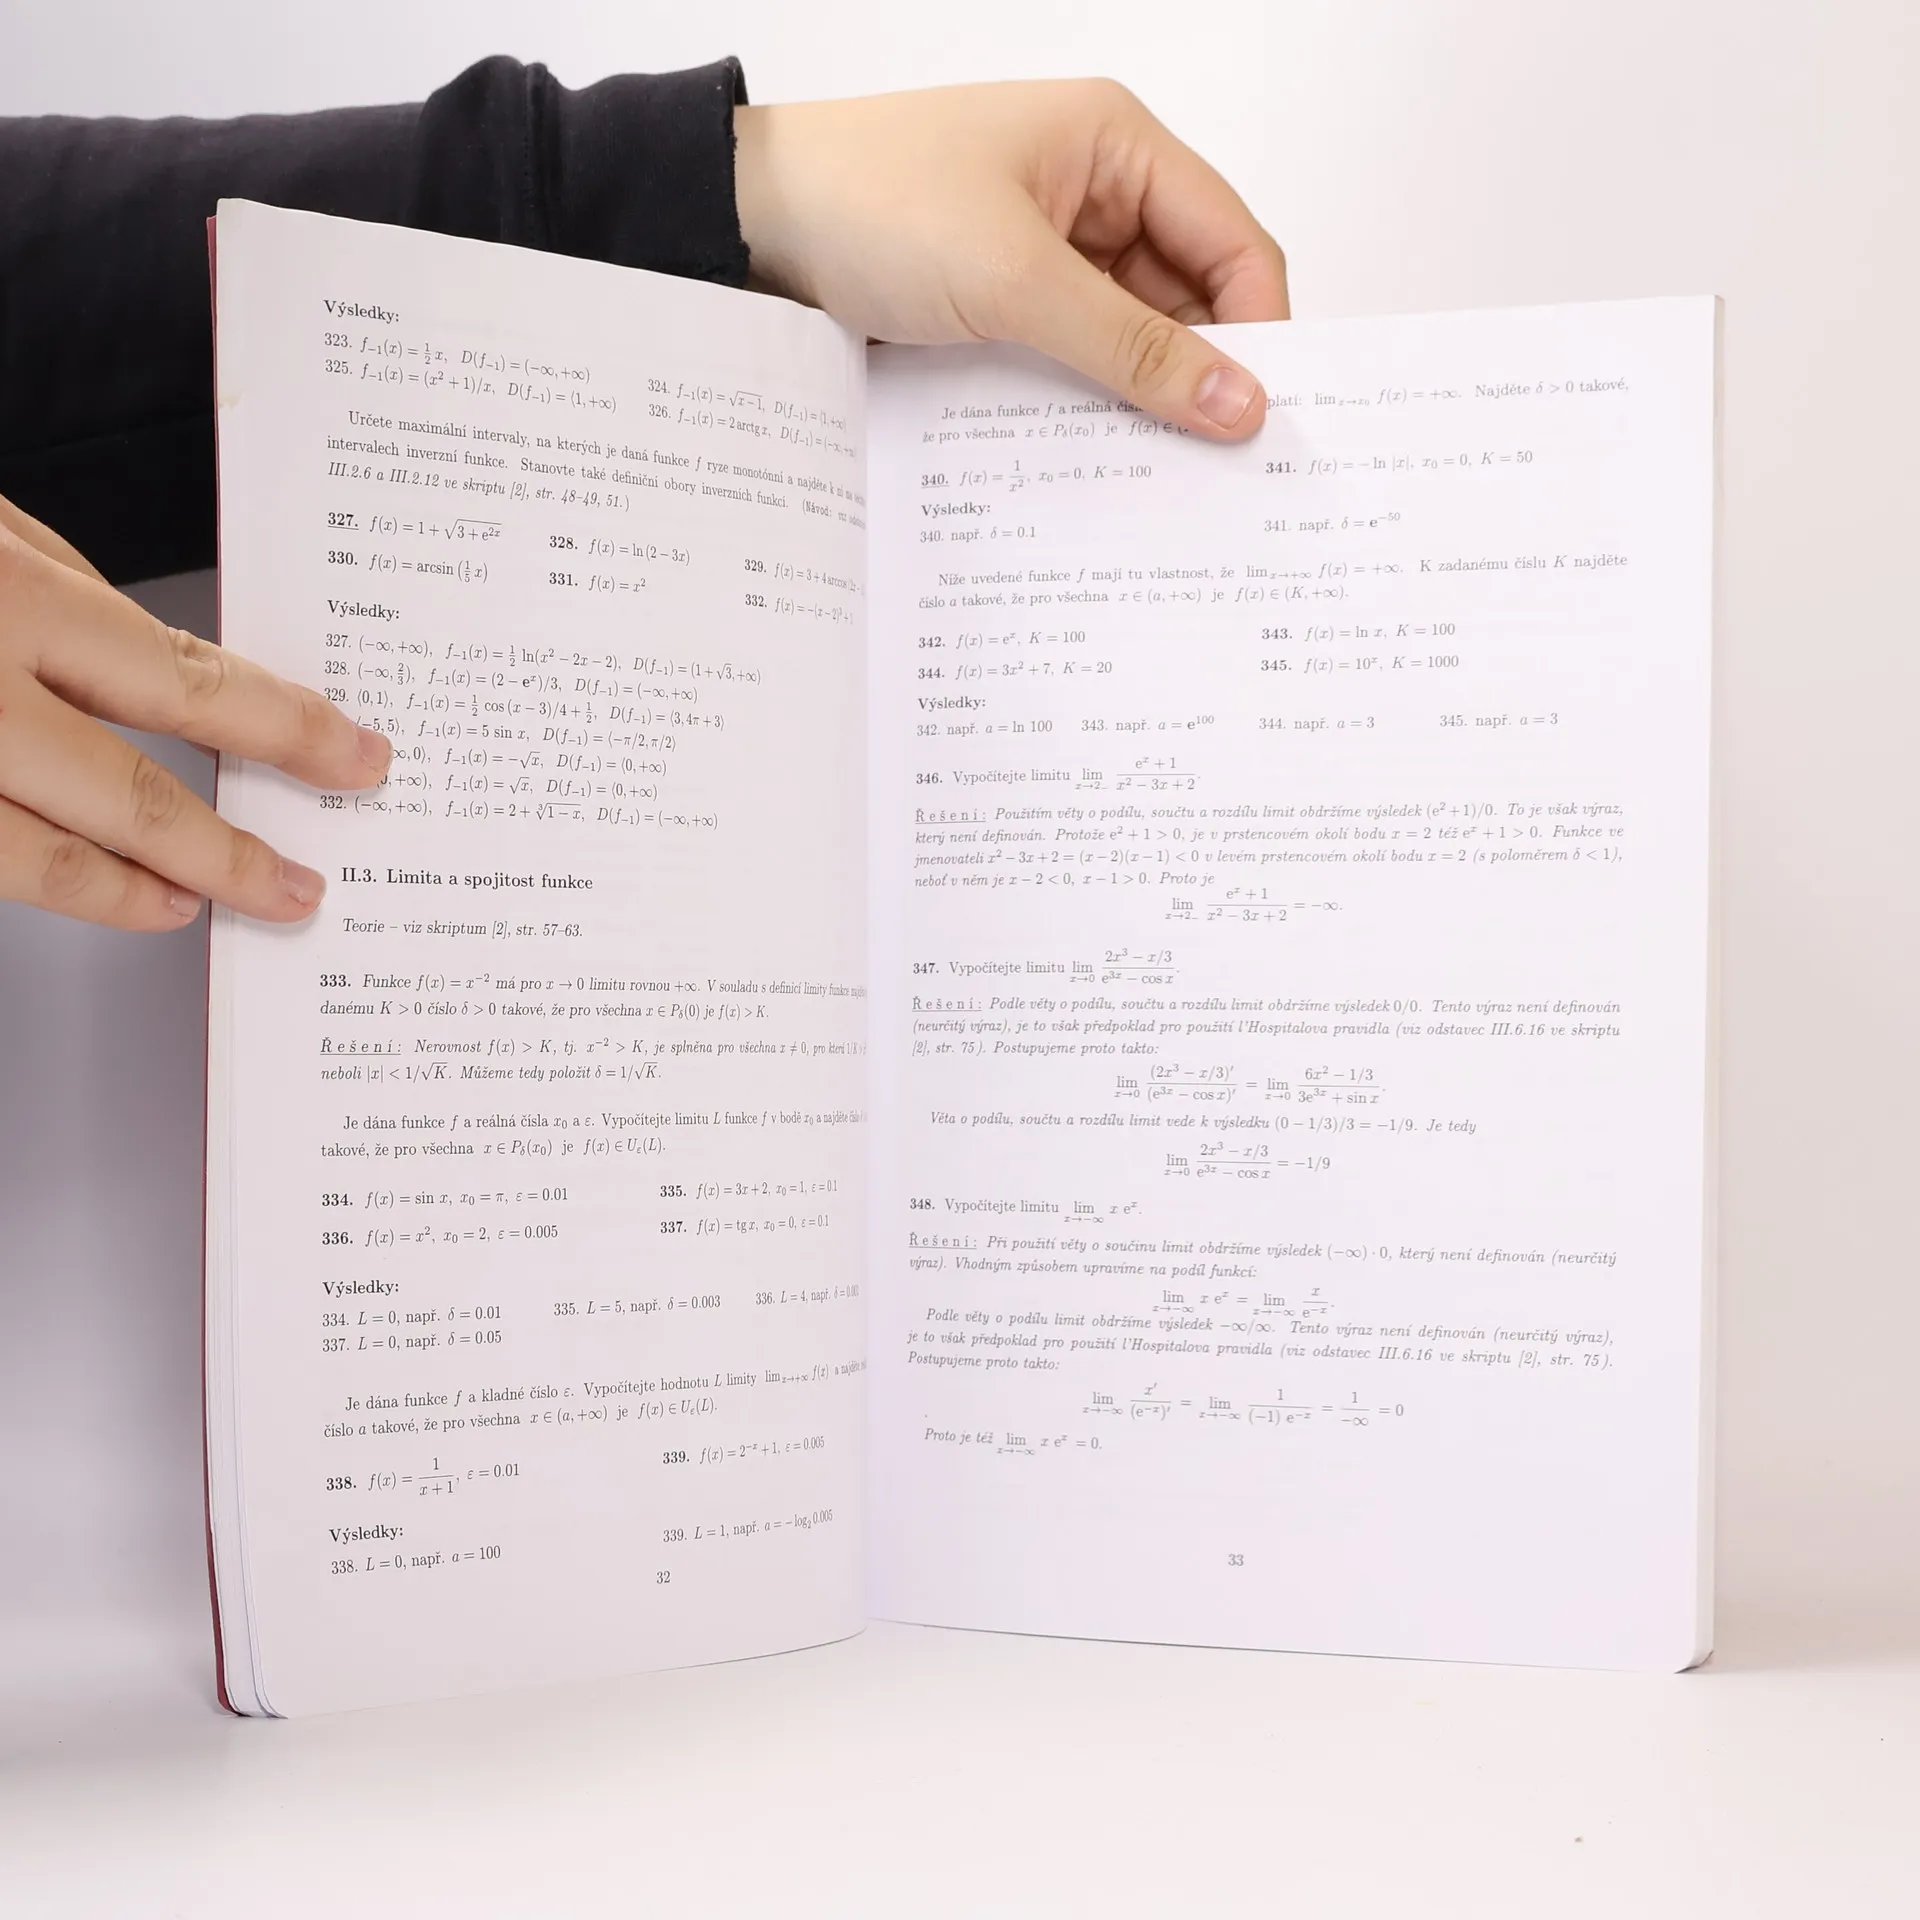 Výsledky:
323. f₋₁(x) = ½ x, D(f₋₁) = (−∞, +∞) 324. f₋₁(x) = √(x−1), D(f₋₁) = ⟨1, +∞)
325. f₋₁(x) = (x² + 1)/x, D(f₋₁) = ⟨1, +∞) 326. f₋₁(x) = 2 arctg x, D(f₋₁) = (−∞, +∞)
Určete maximální intervaly, na kterých je daná funkce f ryze monotónní a najděte k ní na
intervalech inverzní funkce. Stanovte také definiční obory inverzních funkcí. (Návod: viz
III.2.6 a III.2.12 ve skriptu [2], str. 48–49, 51.)
327. f(x) = 1 + √(3 + e²ˣ) 328. f(x) = ln (2 − 3x) 329. f(x) = 3 + 4 arccos
330. f(x) = arcsin (⅕ x) 331. f(x) = x² 332. f(x) = −(x − 2)³ + 1
Výsledky:
327. (−∞, +∞), f₋₁(x) = ½ ln(x² − 2x − 2), D(f₋₁) = (1 + √3, +∞)
328. (−∞, ⅔), f₋₁(x) = (2 − eˣ)/3, D(f₋₁) = (−∞, +∞)
329. ⟨0, 1⟩, f₋₁(x) = ½ cos (x − 3)/4 + ½, D(f₋₁) = ⟨3, 4π + 3⟩
⟨−5, 5⟩, f₋₁(x) = 5 sin x, D(f₋₁) = ⟨−π/2, π/2⟩
∞, 0⟩, f₋₁(x) = −√x, D(f₋₁) = ⟨0, +∞)
, +∞), f₋₁(x) = √x, D(f₋₁) = ⟨0, +∞)
332. (−∞, +∞), f₋₁(x) = 2 + ∛(1 − x), D(f₋₁) = (−∞, +∞)
II.3. Limita a spojitost funkce
Teorie – viz skriptum [2], str. 57–63.
333. Funkce f(x) = x⁻² má pro x → 0 limitu rovnou +∞. V souladu s definicí limity funkce
danému K > 0 číslo δ > 0 takové, že pro všechna x ∈ P_δ(0) je f(x) > K.
Řešení: Nerovnost f(x) > K, tj. x⁻² > K, je splněna pro všechna x ≠ 0, pro která 1/K >
neboli |x| < 1/√K. Můžeme tedy položit δ = 1/√K.
Je dána funkce f a reálná čísla x₀ a ε. Vypočítejte limitu L funkce f v bodě x₀ a najděte
takové, že pro všechna x ∈ P_δ(x₀) je f(x) ∈ U_ε(L).
334. f(x) = sin x, x₀ = π, ε = 0.01 335. f(x) = 3x + 2, x₀ = 1, ε = 0.1
336. f(x) = x², x₀ = 2, ε = 0.005 337. f(x) = tg x, x₀ = 0, ε = 0.1
Výsledky:
334. L = 0, např. δ = 0.01 335. L = 5, např. δ = 0.003 336. L = 4, např. δ = 0.001
337. L = 0, např. δ = 0.05
Je dána funkce f a kladné číslo ε. Vypočítejte hodnotu L limity lim x→+∞ f(x) a najděte
číslo a takové, že pro všechna x ∈ (a, +∞) je f(x) ∈ U_ε(L).
338. f(x) = 1/(x + 1), ε = 0.01 339. f(x) = 2⁻ˣ + 1, ε = 0.005
Výsledky:
338. L = 0, např. a = 100 339. L = 1, např. a = − log₂ 0.005
32
Je dána funkce f a reálná platí: lim x→x₀ f(x) = +∞. Najděte δ > 0 takové,
že pro všechna x ∈ P_δ(x₀) je f(x) ∈
340. f(x) = 1/x², x₀ = 0, K = 100 341. f(x) = − ln |x|, x₀ = 0, K = 50
Výsledky:
340. např. δ = 0.1 341. např. δ = e⁻⁵⁰
Níže uvedené funkce f mají tu vlastnost, že lim x→+∞ f(x) = +∞. K zadanému číslu K najděte
číslo a takové, že pro všechna x ∈ (a, +∞) je f(x) ∈ (K, +∞).
342. f(x) = eˣ, K = 100 343. f(x) = ln x, K = 100
344. f(x) = 3x² + 7, K = 20 345. f(x) = 10ˣ, K = 1000
Výsledky:
342. např. a = ln 100 343. např. a = e¹⁰⁰ 344. např. a = 3 345. např. a = 3
346. Vypočítejte limitu lim x→2₋ (eˣ + 1)/(x² − 3x + 2).
Řešení: Použitím věty o podílu, součtu a rozdílu limit obdržíme výsledek (e² + 1)/0. To je však výraz,
který není definován. Protože e² + 1 > 0, je v prstencovém okolí bodu x = 2 též eˣ + 1 > 0. Funkce ve
jmenovateli x² − 3x + 2 = (x − 2)(x − 1) < 0 v levém prstencovém okolí bodu x = 2 (s poloměrem δ < 1),
neboť v něm je x − 2 < 0, x − 1 > 0. Proto je
lim x→2₋ (eˣ + 1)/(x² − 3x + 2) = −∞.
347. Vypočítejte limitu lim x→0 (2x³ − x/3)/(e³ˣ − cos x).
Řešení: Podle věty o podílu, součtu a rozdílu limit obdržíme výsledek 0/0. Tento výraz není definován
(neurčitý výraz), je to však předpoklad pro použití l'Hospitalova pravidla (viz odstavec III.6.16 ve skriptu
[2], str. 75). Postupujeme proto takto:
lim x→0 (2x³ − x/3)′/(e³ˣ − cos x)′ = lim x→0 (6x² − 1/3)/(3e³ˣ + sin x).
Věta o podílu, součtu a rozdílu limit vede k výsledku (0 − 1/3)/3 = −1/9. Je tedy
lim x→0 (2x³ − x/3)/(e³ˣ − cos x) = −1/9
348. Vypočítejte limitu lim x→−∞ x eˣ.
Řešení: Při použití věty o součinu limit obdržíme výsledek (−∞) · 0, který není definován (neurčitý
výraz). Vhodným způsobem upravíme na podíl funkcí:
lim x→−∞ x eˣ = lim x→−∞ x/e⁻ˣ.
Podle věty o podílu limit obdržíme výsledek −∞/∞. Tento výraz není definován (neurčitý výraz),
je to však předpoklad pro použití l'Hospitalova pravidla (viz odstavec III.6.16 ve skriptu [2], str. 75).
Postupujeme proto takto:
lim x→−∞ x′/(e⁻ˣ)′ = lim x→−∞ 1/((−1) e⁻ˣ) = 1/−∞ = 0
Proto je též lim x→−∞ x eˣ = 0.
33